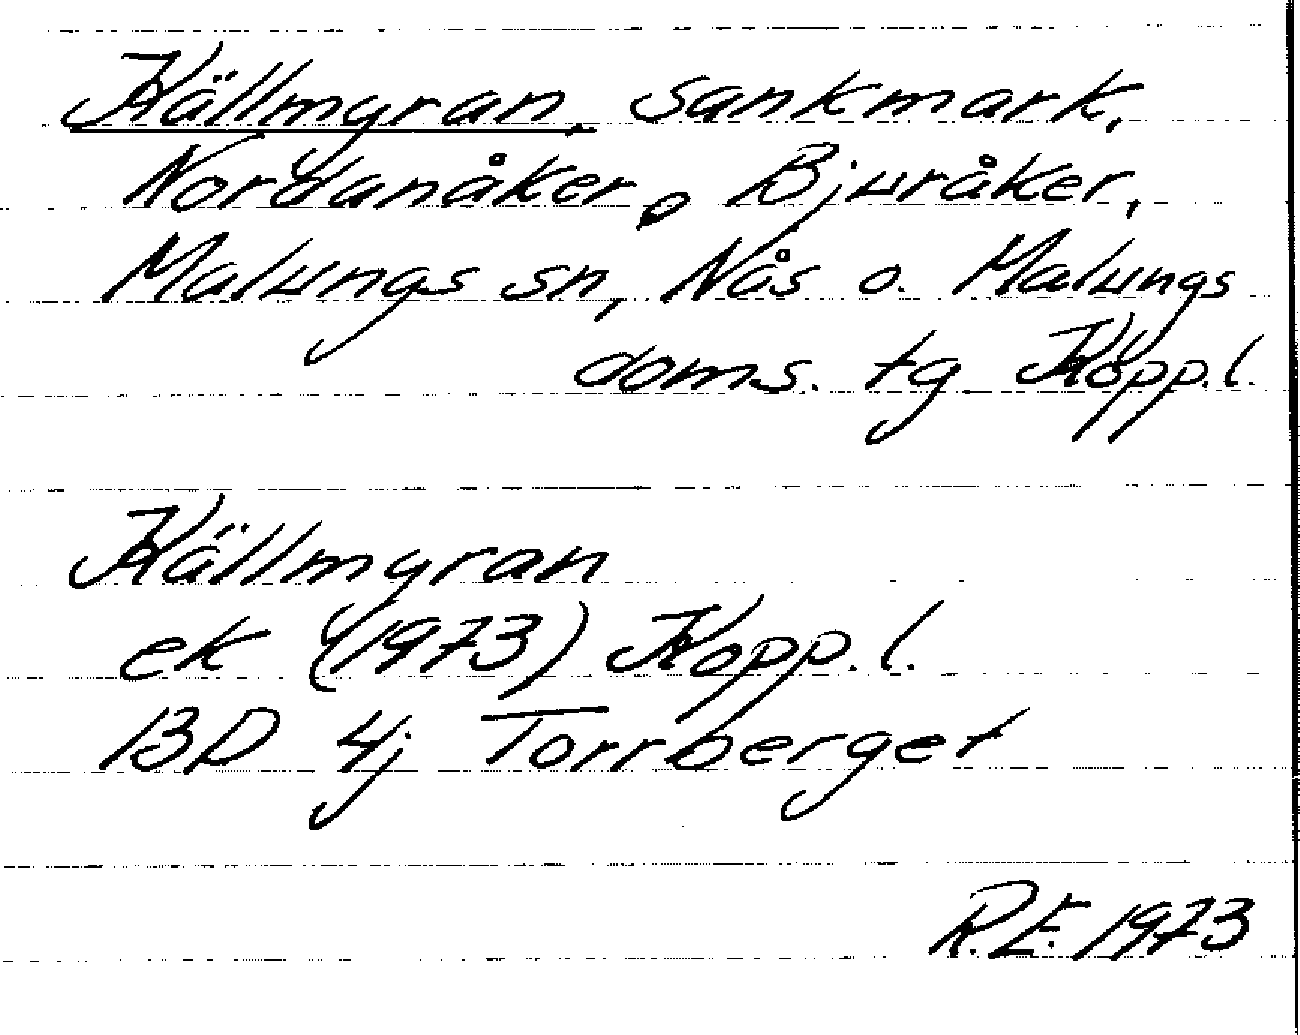 Källmyran, sankmark,
Nordanåker o Bjuråker,
Malungs sn, Nås o. Malungs
doms. tg Kopp.l.
Källmyran
ek (1973) Kopp.l.
13D 4j Torrberget
R.E. 1973